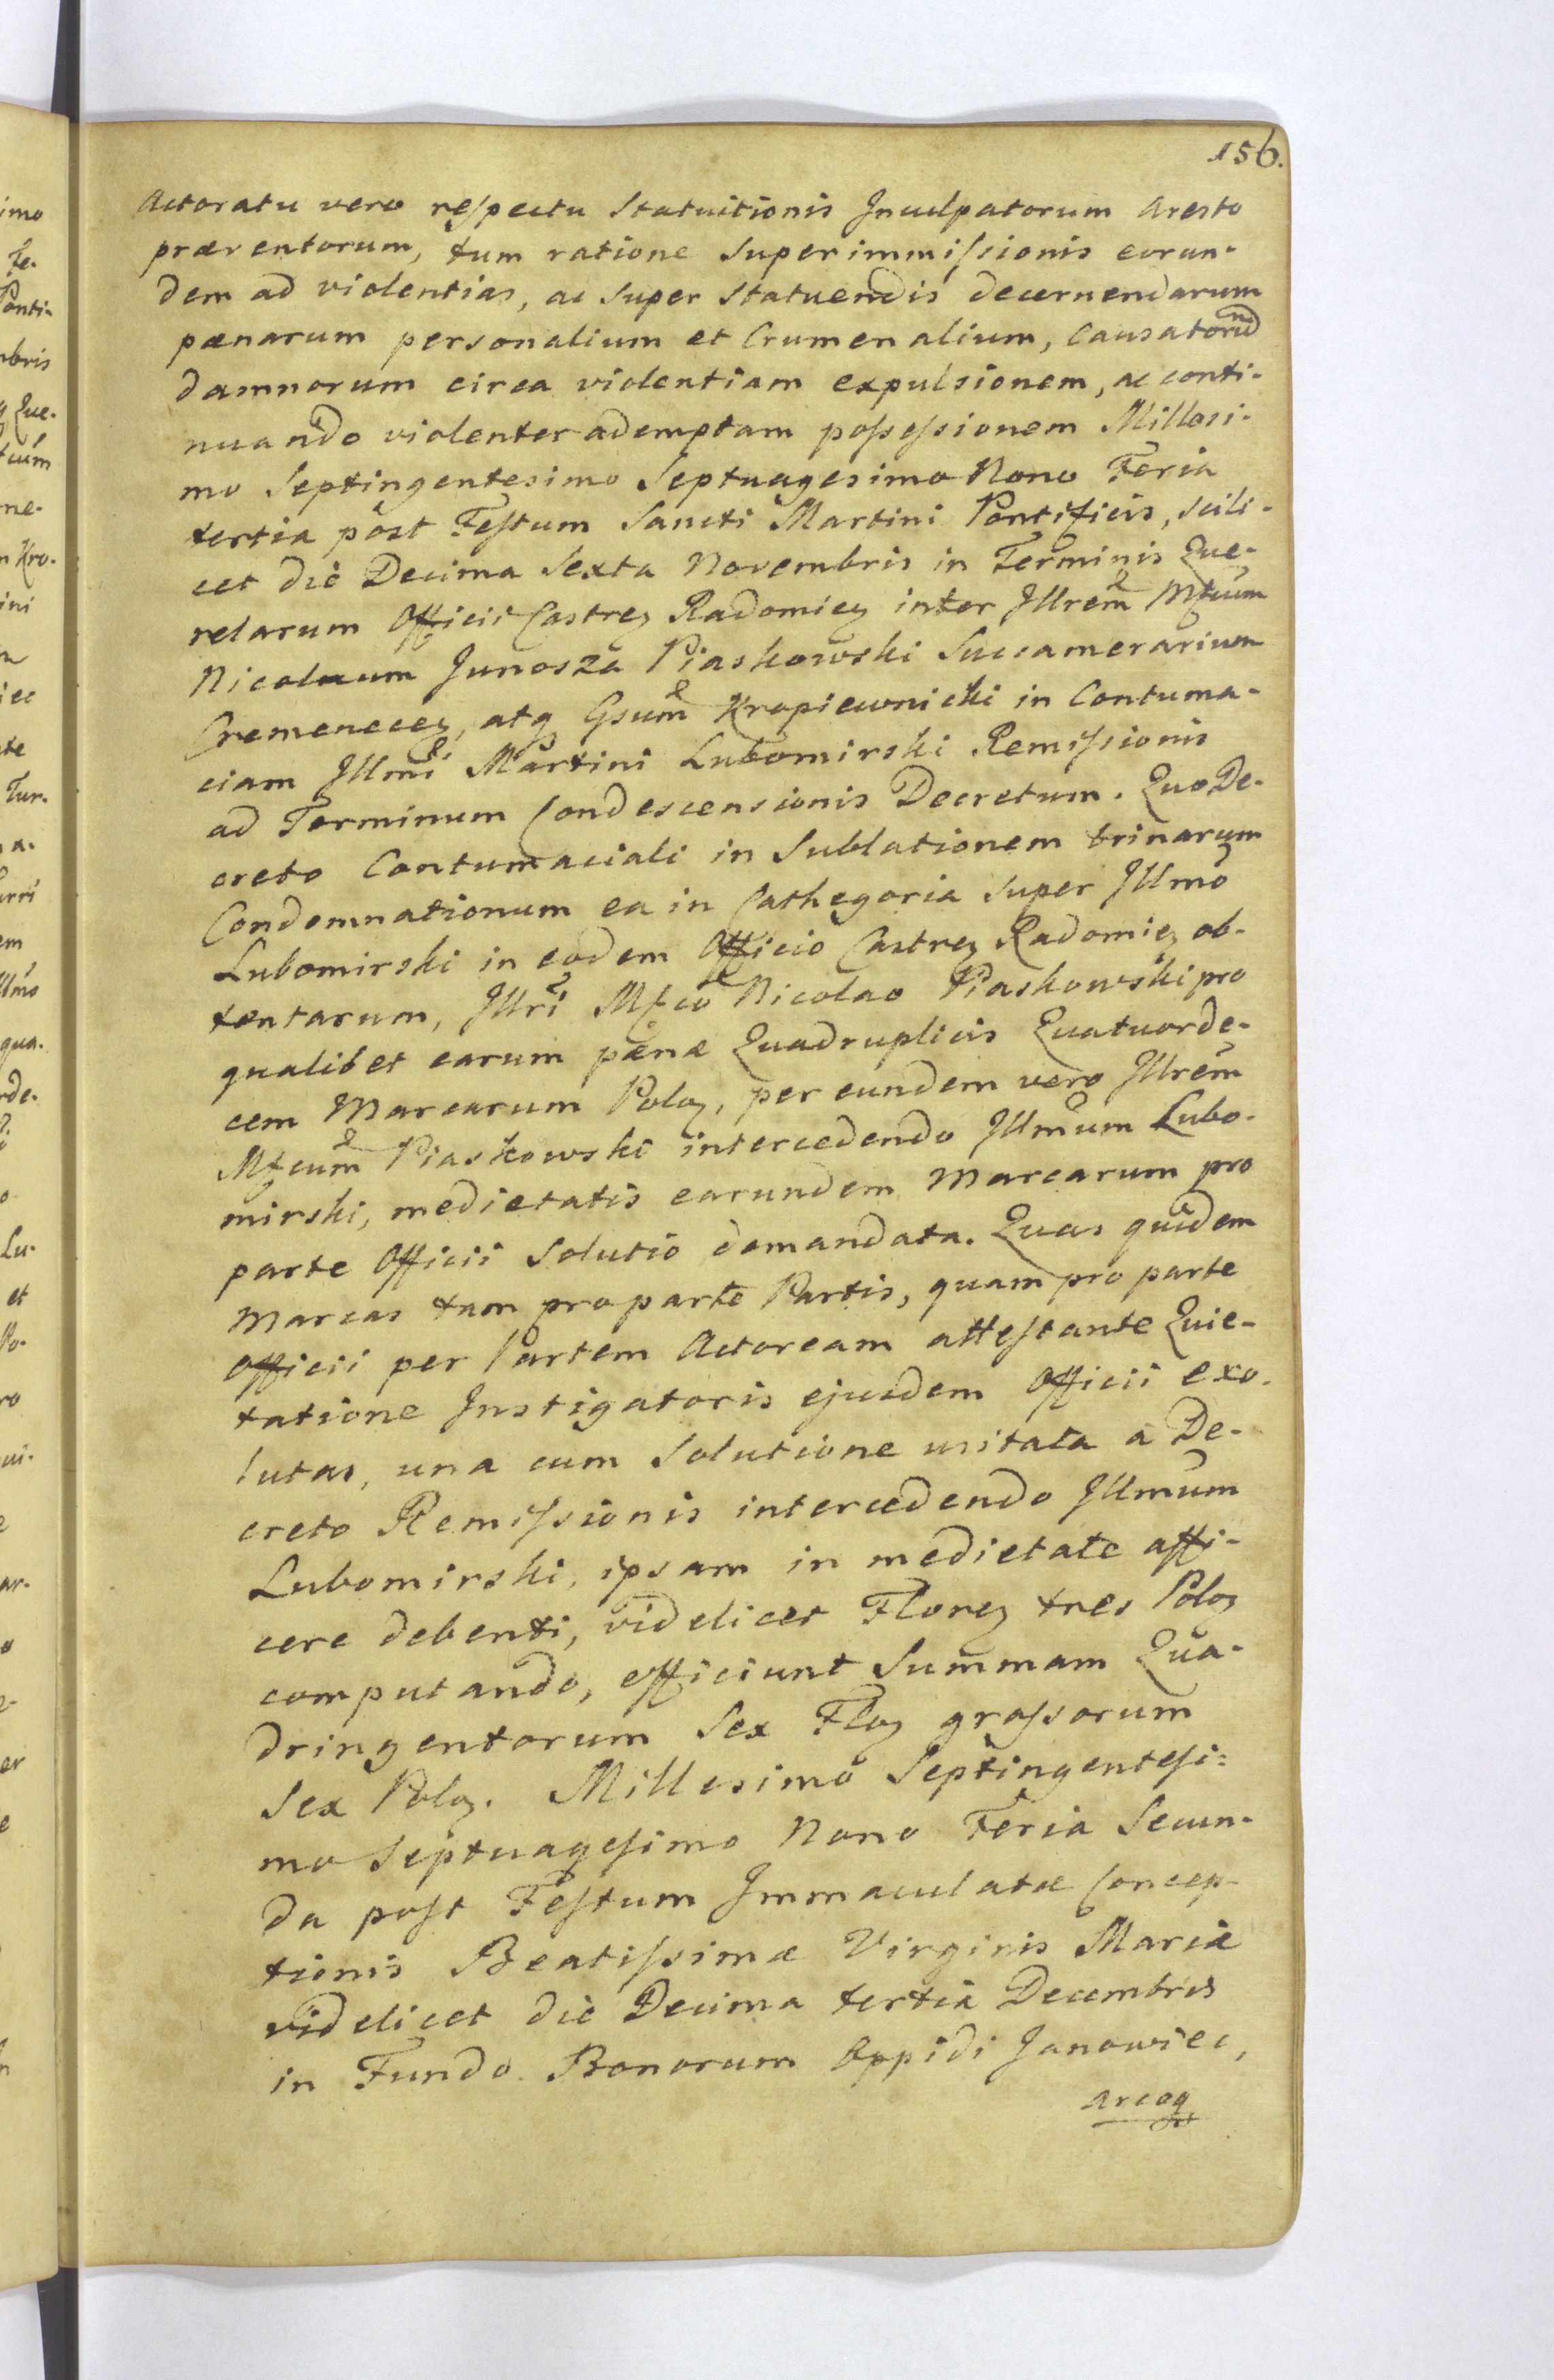 156.
Actoratu vero respectu Statuitionis Inculpatorum Aresto
præventorum, tum ratione superimmissionis eorun-
dem ad violentias, ac super statuendis decernendarum
pænarum personalium et Crumenalium, Causatorũ
damnorum circa violentiam expulsionem, ac conti-
nuando violenter ademptam possessionem Millesi-
mo Septingentesimo Septuagesimo Nono Feria
tertia post Festum Sancti Martini Pontificis, scili-
cet die Decima Sexta Novembris in Terminis Que-
relarum Officii Castreꝫ Radomieꝫ inter Illrem Mfcum
Nicolaum Junosza Piaskowski Succamerarium
Cremeneceꝫ, atqꝫ Gsum Kropiewnicki in Contuma-
ciam Illmi Martini Lubomirski Remissionis
ad Terminum Condescensionis Decretum. Quo De-
creto Contumaciali in Sublationem trinarum
Condemnationum ea in Cathegoria super Illmo
Lubomirski in eodem Officio Castreꝫ Radomieꝫ ob-
tentarum, Illri Mfco Nicolao Piaskowski pro
qualibet earum pænæ Quadruplicis Quatuorde-
cem Marcarum Poloꝫ, per eundem vero Illrem
Mfcum Piaskowski intercedendo Illmum Lubo-
mirski, medietatis earundem Marcarum pro
parte Officii Solutio demandata. Quas quidem
Marcas tam pro parte Partis, quam pro parte
Officii per Partem Actoream attestante Quie-
tatione Instigatoris ejusdem Officii exo-
lutas, una cum Solutione usitata a De-
creto Remissionis intercedendo Illmum
Lubomirski, ipsam in medietate affi-
cere debenti, videlicet Floreꝫ tres Poloꝫ
computando, efficiunt Summam Qua-
dringentorum Sex Floꝫ grossorum
Sex Poloꝫ. Millesimo Septingentesi-
mo Septuagesimo Nono Feria Secun-
da post Festum Immaculatæ Concep-
tionis Beatissimæ Virginis Mariæ
videlicet die Decima tertia Decembris
in Fundo Bonorum Oppidi Janowiec,
Arcoq